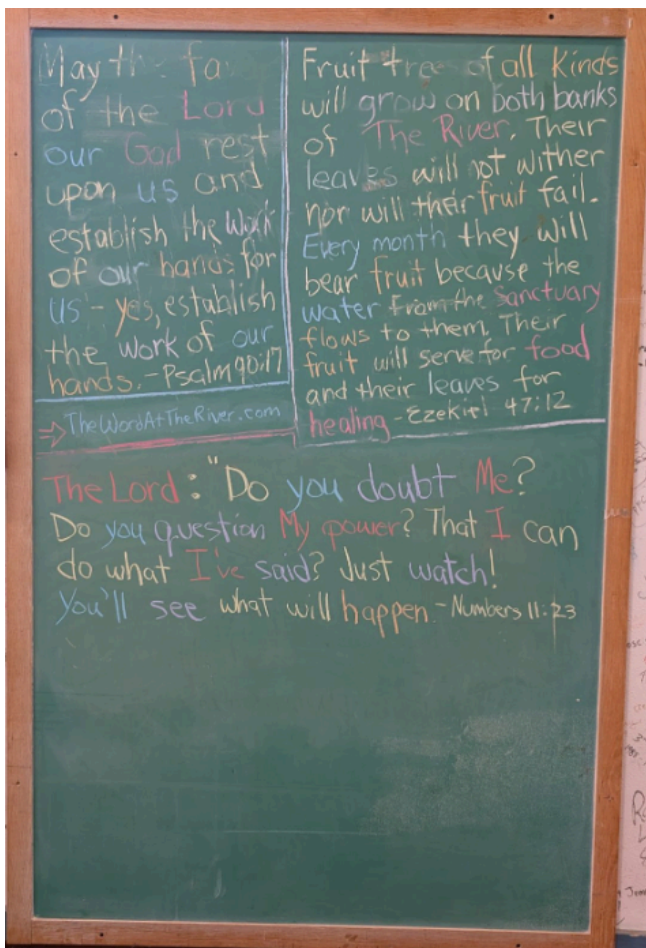 May the fa
of the Lord
our God rest
upon us and
establish the work
of our hands for
us - yes, establish
the work of our
hands. - Psalm 90:17
→ TheWordAtTheRiver.com
Fruit tree of all Kinds
will grow on both banks
of The River. Their
leaves will not wither
nor will their fruit fail.
Every month they will
bear fruit because the
water from the Sanctuary
flows to them. Their
fruit will serve for food
and their leaves for
healing - Ezekiel 47:12
The Lord: "Do you doubt Me?
Do you question My power? That I can
do what I've said? Just watch!
You'll see what will happen - Numbers 11:23